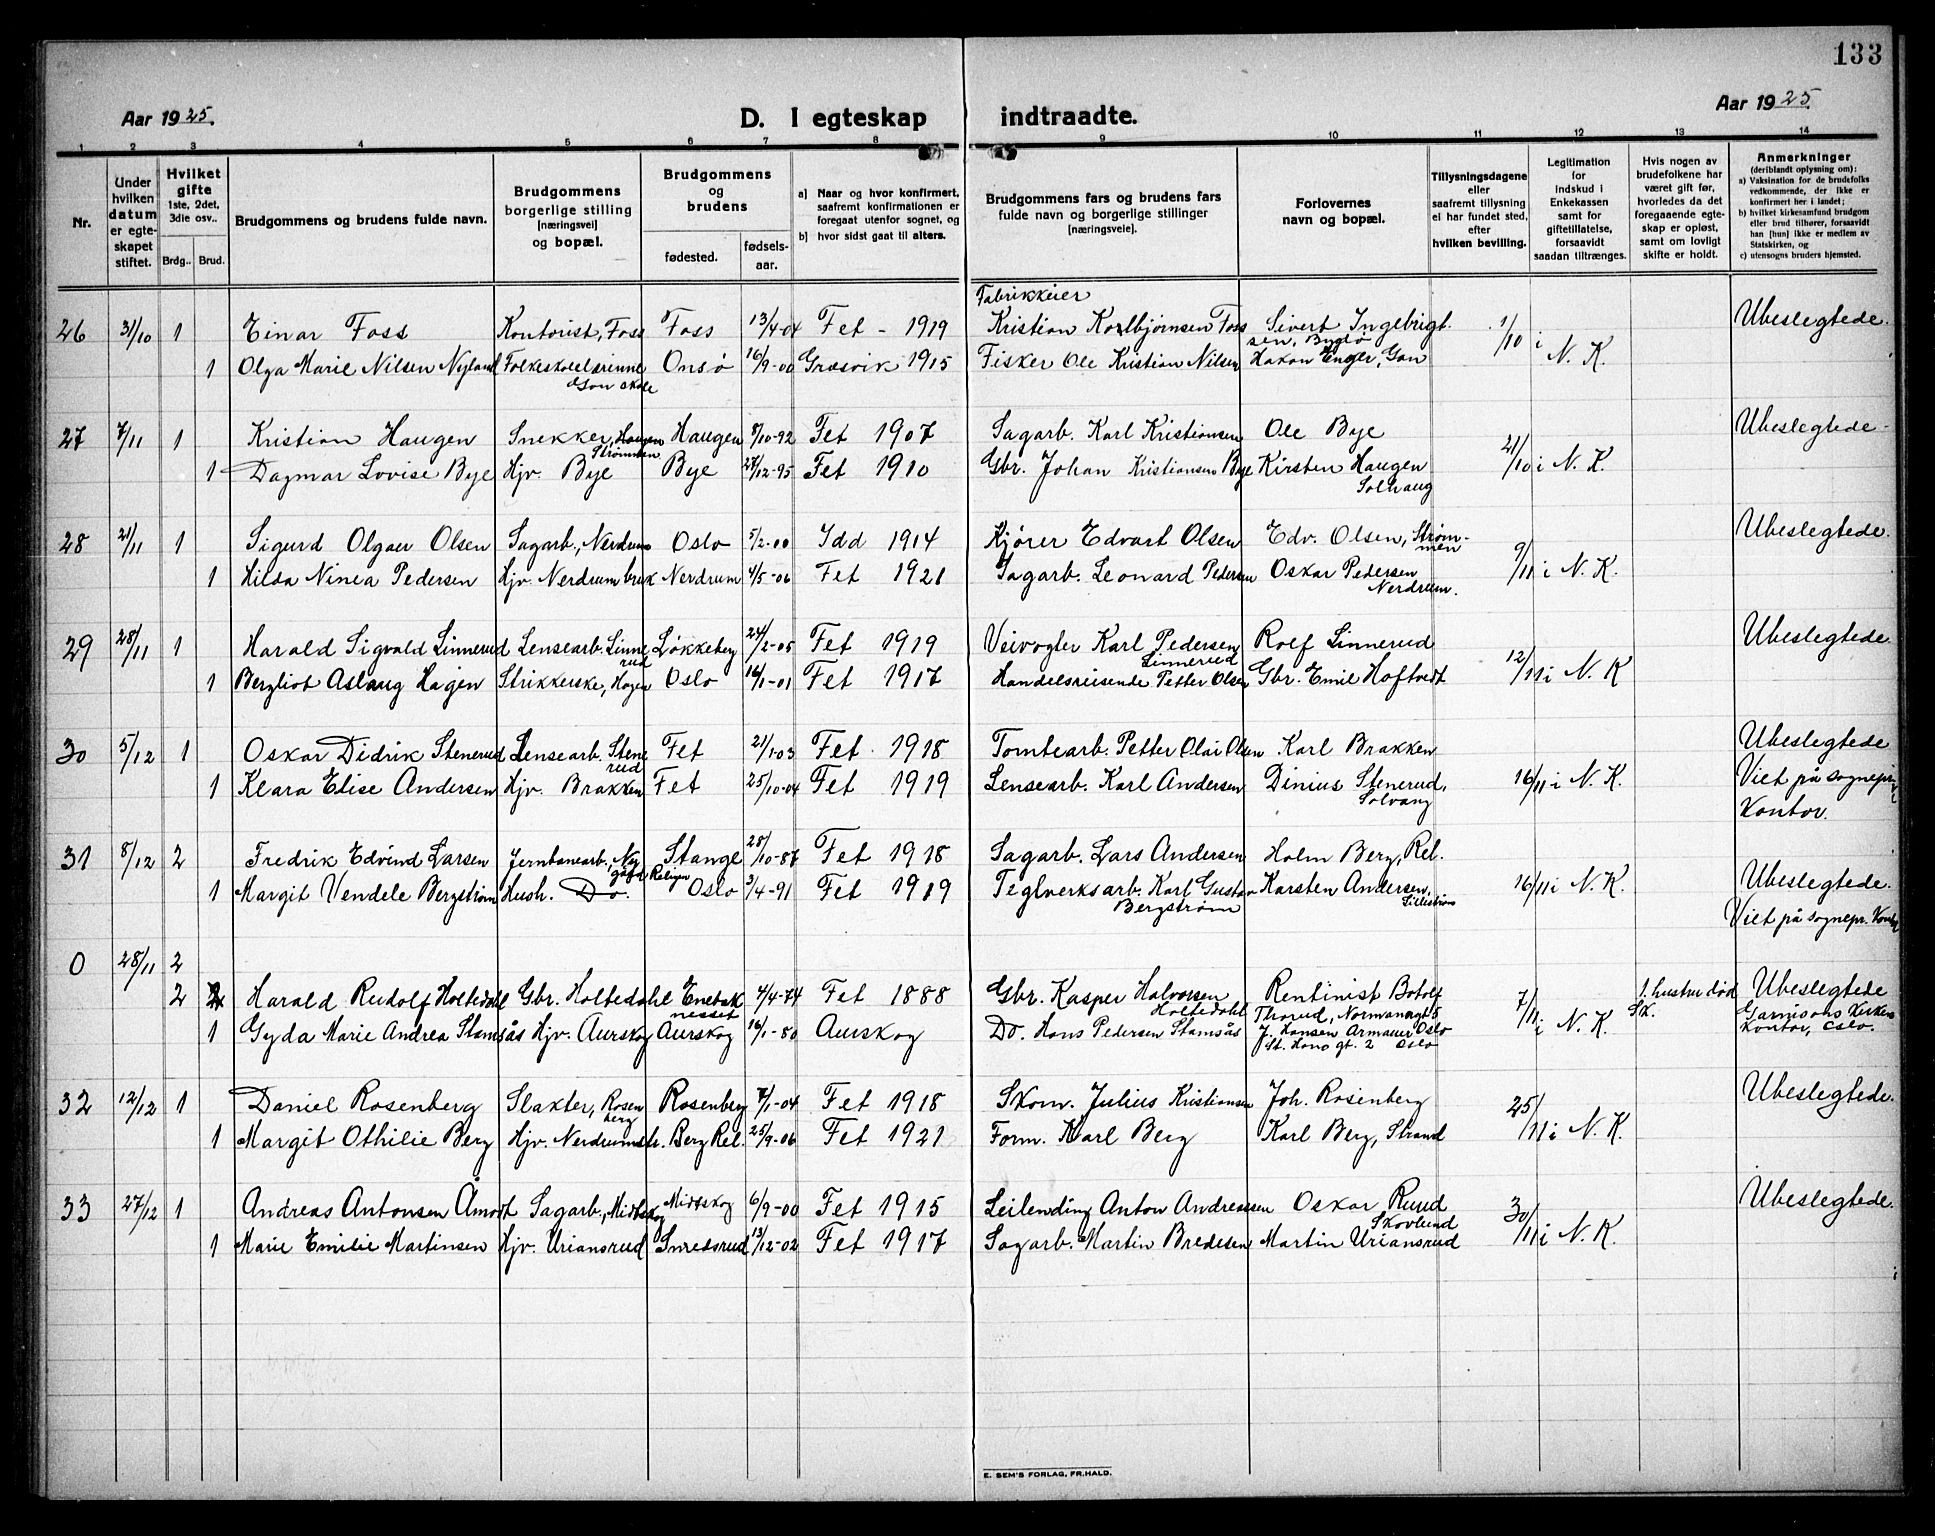 133
Aar 1925.
D. I egteskap indtraadte.
Aar 1925.
1 2 3 4 5 6 7 8 9 10 11 12 13 14
Nr.
Under hvilken datum er egteskapet stiftet.
Hvilket gifte 1ste, 2det, 3die osv..
Brdg.. Brud.
Brudgommens og brudens fulde navn.
Brudgommens borgerlige stilling [næringsvei] og bopæl.
Brudgommens og brudens
fødested. fødsels-aar.
a) Naar og hvor konfirmert, saafremt konfirmationen er foregaat utenfor sognet, og
b) hvor sidst gaat til alters.
Brudgommens fars og brudens fars fulde navn og borgerlige stillinger [næringsveie].
Forlovernes navn og bopæl.
Tillysningsdagene eller saafremt tillysning ei har fundet sted, efter hvilken bevilling.
Legitimation for Indskud i Enkekassen samt for giftetillatelse, forsaavidt saadan tiltrænges.
Hvis nogen av brudefolkene har været gift før, hvorledes da det foregaaende egteskap er opløst, samt om lovligt skifte er holdt.
Anmerkninger (deriblandt oplysning om):
a) Vaksination for de brudefolks vedkommende, der ikke er konfirmert her i landet;
b) hvilket kirkesamfund brudgom eller brud tilhører, forsaavidt han [hun] ikke er medlem av Statskirken, og
c) utensogns bruders hjemsted.
26 31/10 1 Einar Foss Kontorist, Foss Foss 13/4-04 Fet - 1919 Fabrikkeier Kristian Kolbjørnsen Foss Sivert Ingebrigtsen, Byglø 1/10 i N. K. Ubeslegtede.
1 Olga Marie Nilsen Nyland Folkeskolelærinne Gan skole Onsø 16/9-00 Græsvik 1915 Fisker Ole Kristian Nilsen Hakon Enger, Gan
27 7/11 1 Kristian Haugen Snekker, Haugen Strømmen Haugen 8/10-92 Fet 1907 Sagarb. Karl Kristiansen Ole Bye 21/10 i N. K. Ubeslegtede-
1 Dagmar Lovise Bye Hjv. Bye Bye 27/12-95 Fet 1910 Gbr. Johan Kristiansen Bye Kirsten Haugen Solhaug
28 21/11 1 Sigurd Olgar Olsen Sagarb., Nerdrum Oslo 5/2-00 Idd 1914 Kjører Edvart Olsen Edv. Olsen, Strømmen 9/11 i N. K. Ubeslegtede.
1 Hilda Ninea Pedersen Hjv. Nerdrum bruk Nerdrum 4/5-06 Fet 1921 Sagarb. Leonard Pedersen Oskar Pedersen Nerdrum.
29 28/11 1 Harald Sigvald Linnerud Lensearb. Linnerud Løkkeberg 24/2-05 Fet 1919 Veivogter Karl Pedersen Linnerud Rolf Linnerud 12/11 i N. K Ubeslegtede.
1 Bergliot Aslaug Hagen Strikkerske, Hagen Oslo 16/1-01 Fet 1917 Handelsreisende Petter Olsen Gbr. Emil Hoftvedt
30 5/12 1 Oskar Didrik Stenerud Lensearb. Stenerud Fet 21/1-03 Fet 1918 Tomtearb. Petter Olai Olsen Karl Brakken 16/11 i N. K. Ubeslegtede
1 Klara Elise Andersen Hjv. Brakken Fet 25/10-04 Fet 1919 Lensearb. Karl Andersen Dinius Stenerud, Solvang Viet på sognepr. kontor.
31 8/12 2 Fredrik Edvind Larsen Jernbanearb. Nygård Stange 28/10-87 Fet 1918 Sagarb. Lars Andersen Holm Berg, Rel. 16/11 i N. K. Ubeslegtede.
1 Margit Vendele Bergstrøm Hush. Do. Relingen Oslo 3/4-91 Fet 1919 Teglverksarb. Karl Gustav Bergstrøm Karsten Andersen, Lillestrøm Viet på sognepr. Kontor
0 28/11 2
2 Harald Rudolf Holtedahl Gbr. Holtedahl Enebaknesset 4/4-74 Fet 1888 Gbr. Kasper Halvorsen Holtedahl Rentinist Botolf Thorud, Normansgt 5 7/11 i N. K. 1. hustru død Sk. Ubeslegtede
1 Gyda Marie Andrea Stamsås Hjv. Aurskog Aurskog 16/1-80 Aurskog Do. Hans Pedersen Stamsås J. Hansen Armauer Oslo St. Hans gt. 2 Oslo Garnisons Kirkens kontor, Oslo.
32 12/12 1 Daniel Rosenberg Slakter, Rosenberg Rosenberg 7/1-04 Fet 1918 Skom. Julius Kristiansen Joh. Rosenberg 25/11 i N. K. Ubeslegtede.
1 Margit Othilie Berg Hjv. Nerdrumsh. Berg Rel. 25/9-06 Fet 1921 Form. Karl Berg Karl Berg, Strand
33 27/12 1 Andreas Antonsen Åmodt Sagarb., Midtskog Midtskog 6/9-00 Fet 1915 Leilending Anton Andreassen Oskar Ruud Skovlund 30/11 i N. K. Ubeslegtede.
1 Marie Emilie Martinsen Hjv. Uriansrud Snredsrud 13/12-02 Fet 1917 Sagarb. Martin Bredesen Martin Uriansrud
E. SEM'S FORLAG, FR.HALD.